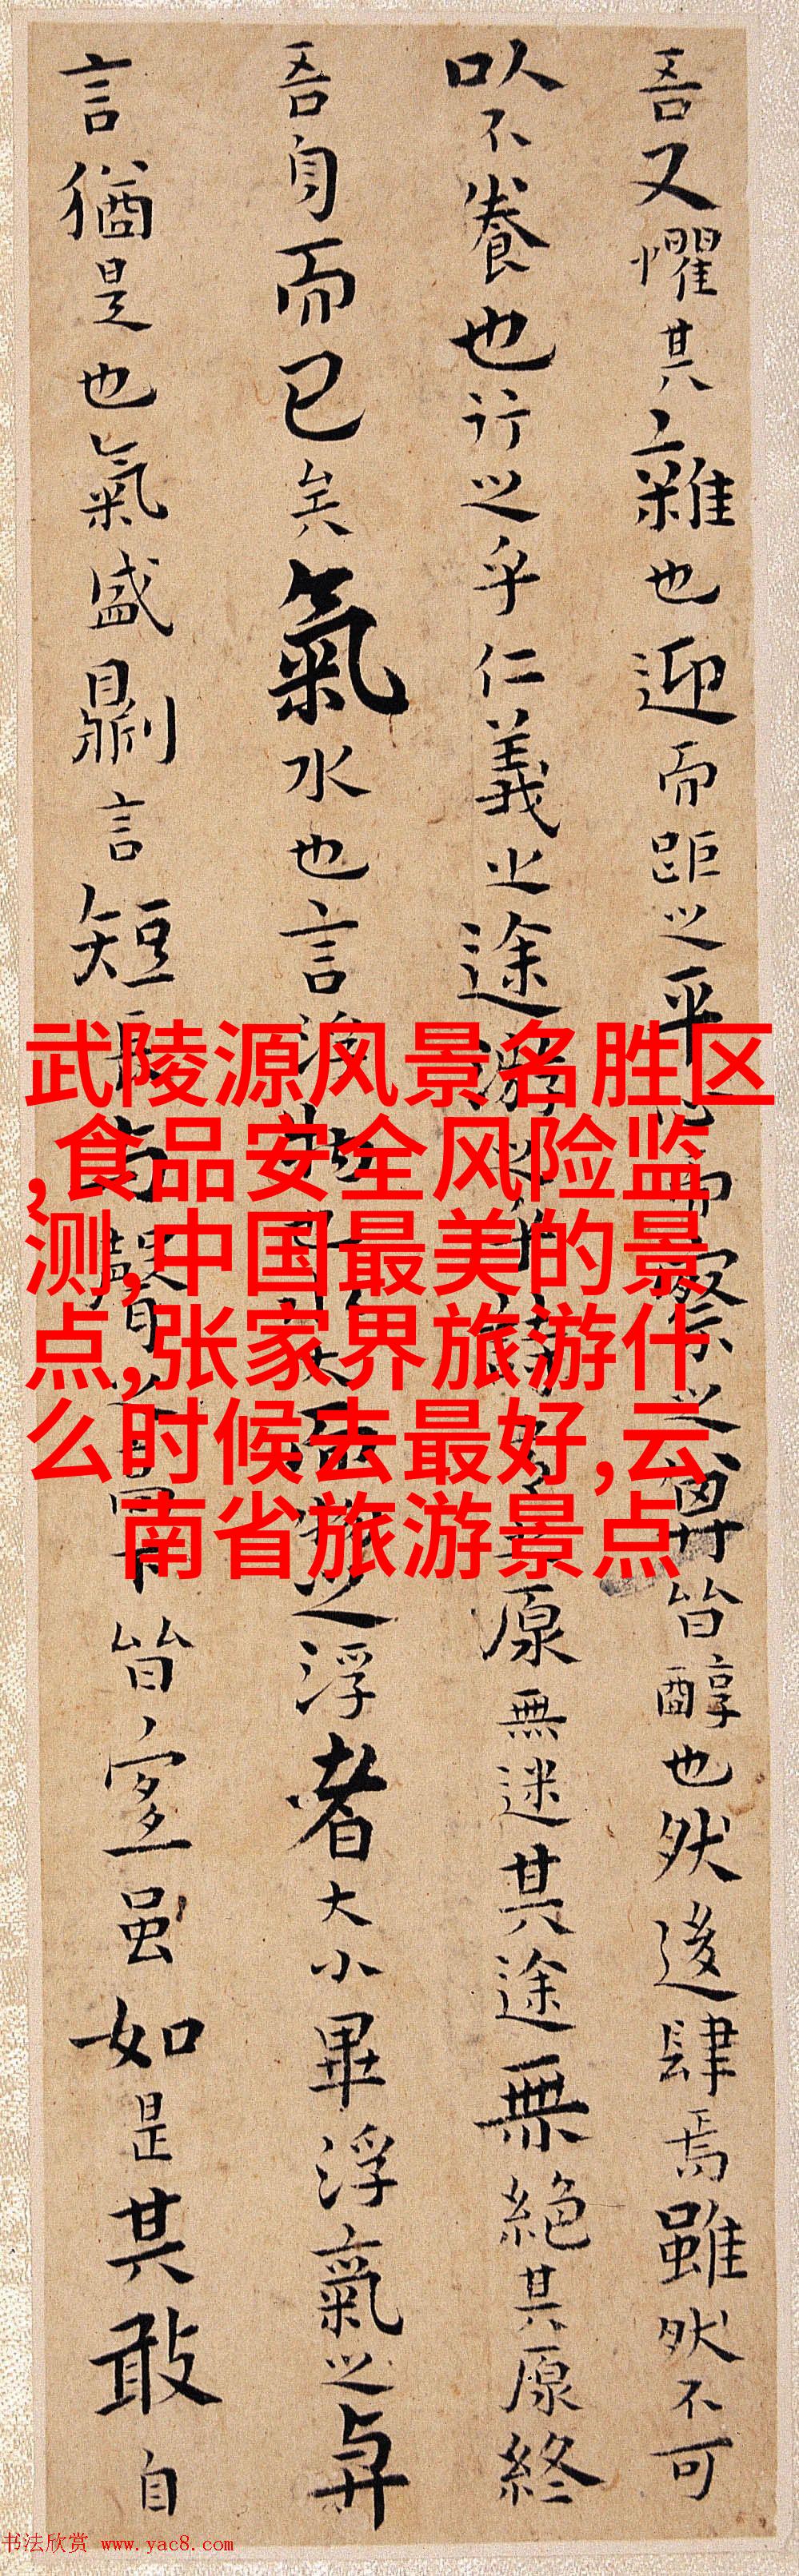 吾又懼其雜也迎而距之平心而察之皆醇也然後肆焉雖然不可
以不養也行之乎仁義之途游之乎詩書之原無迷其途無絕其原終
吾身而已矣氣水也言浮物也水大而物之浮者大小畢浮氣之与
言猶是也氣盛則言短長与聲之高下皆宜虽如是其敢自
武陵源风景名胜区
,食品安全风险监
测,中国最美的景
点,张家界旅游什
么时候去最好,云
南省旅游景点
书法欣赏 www.yac8.com